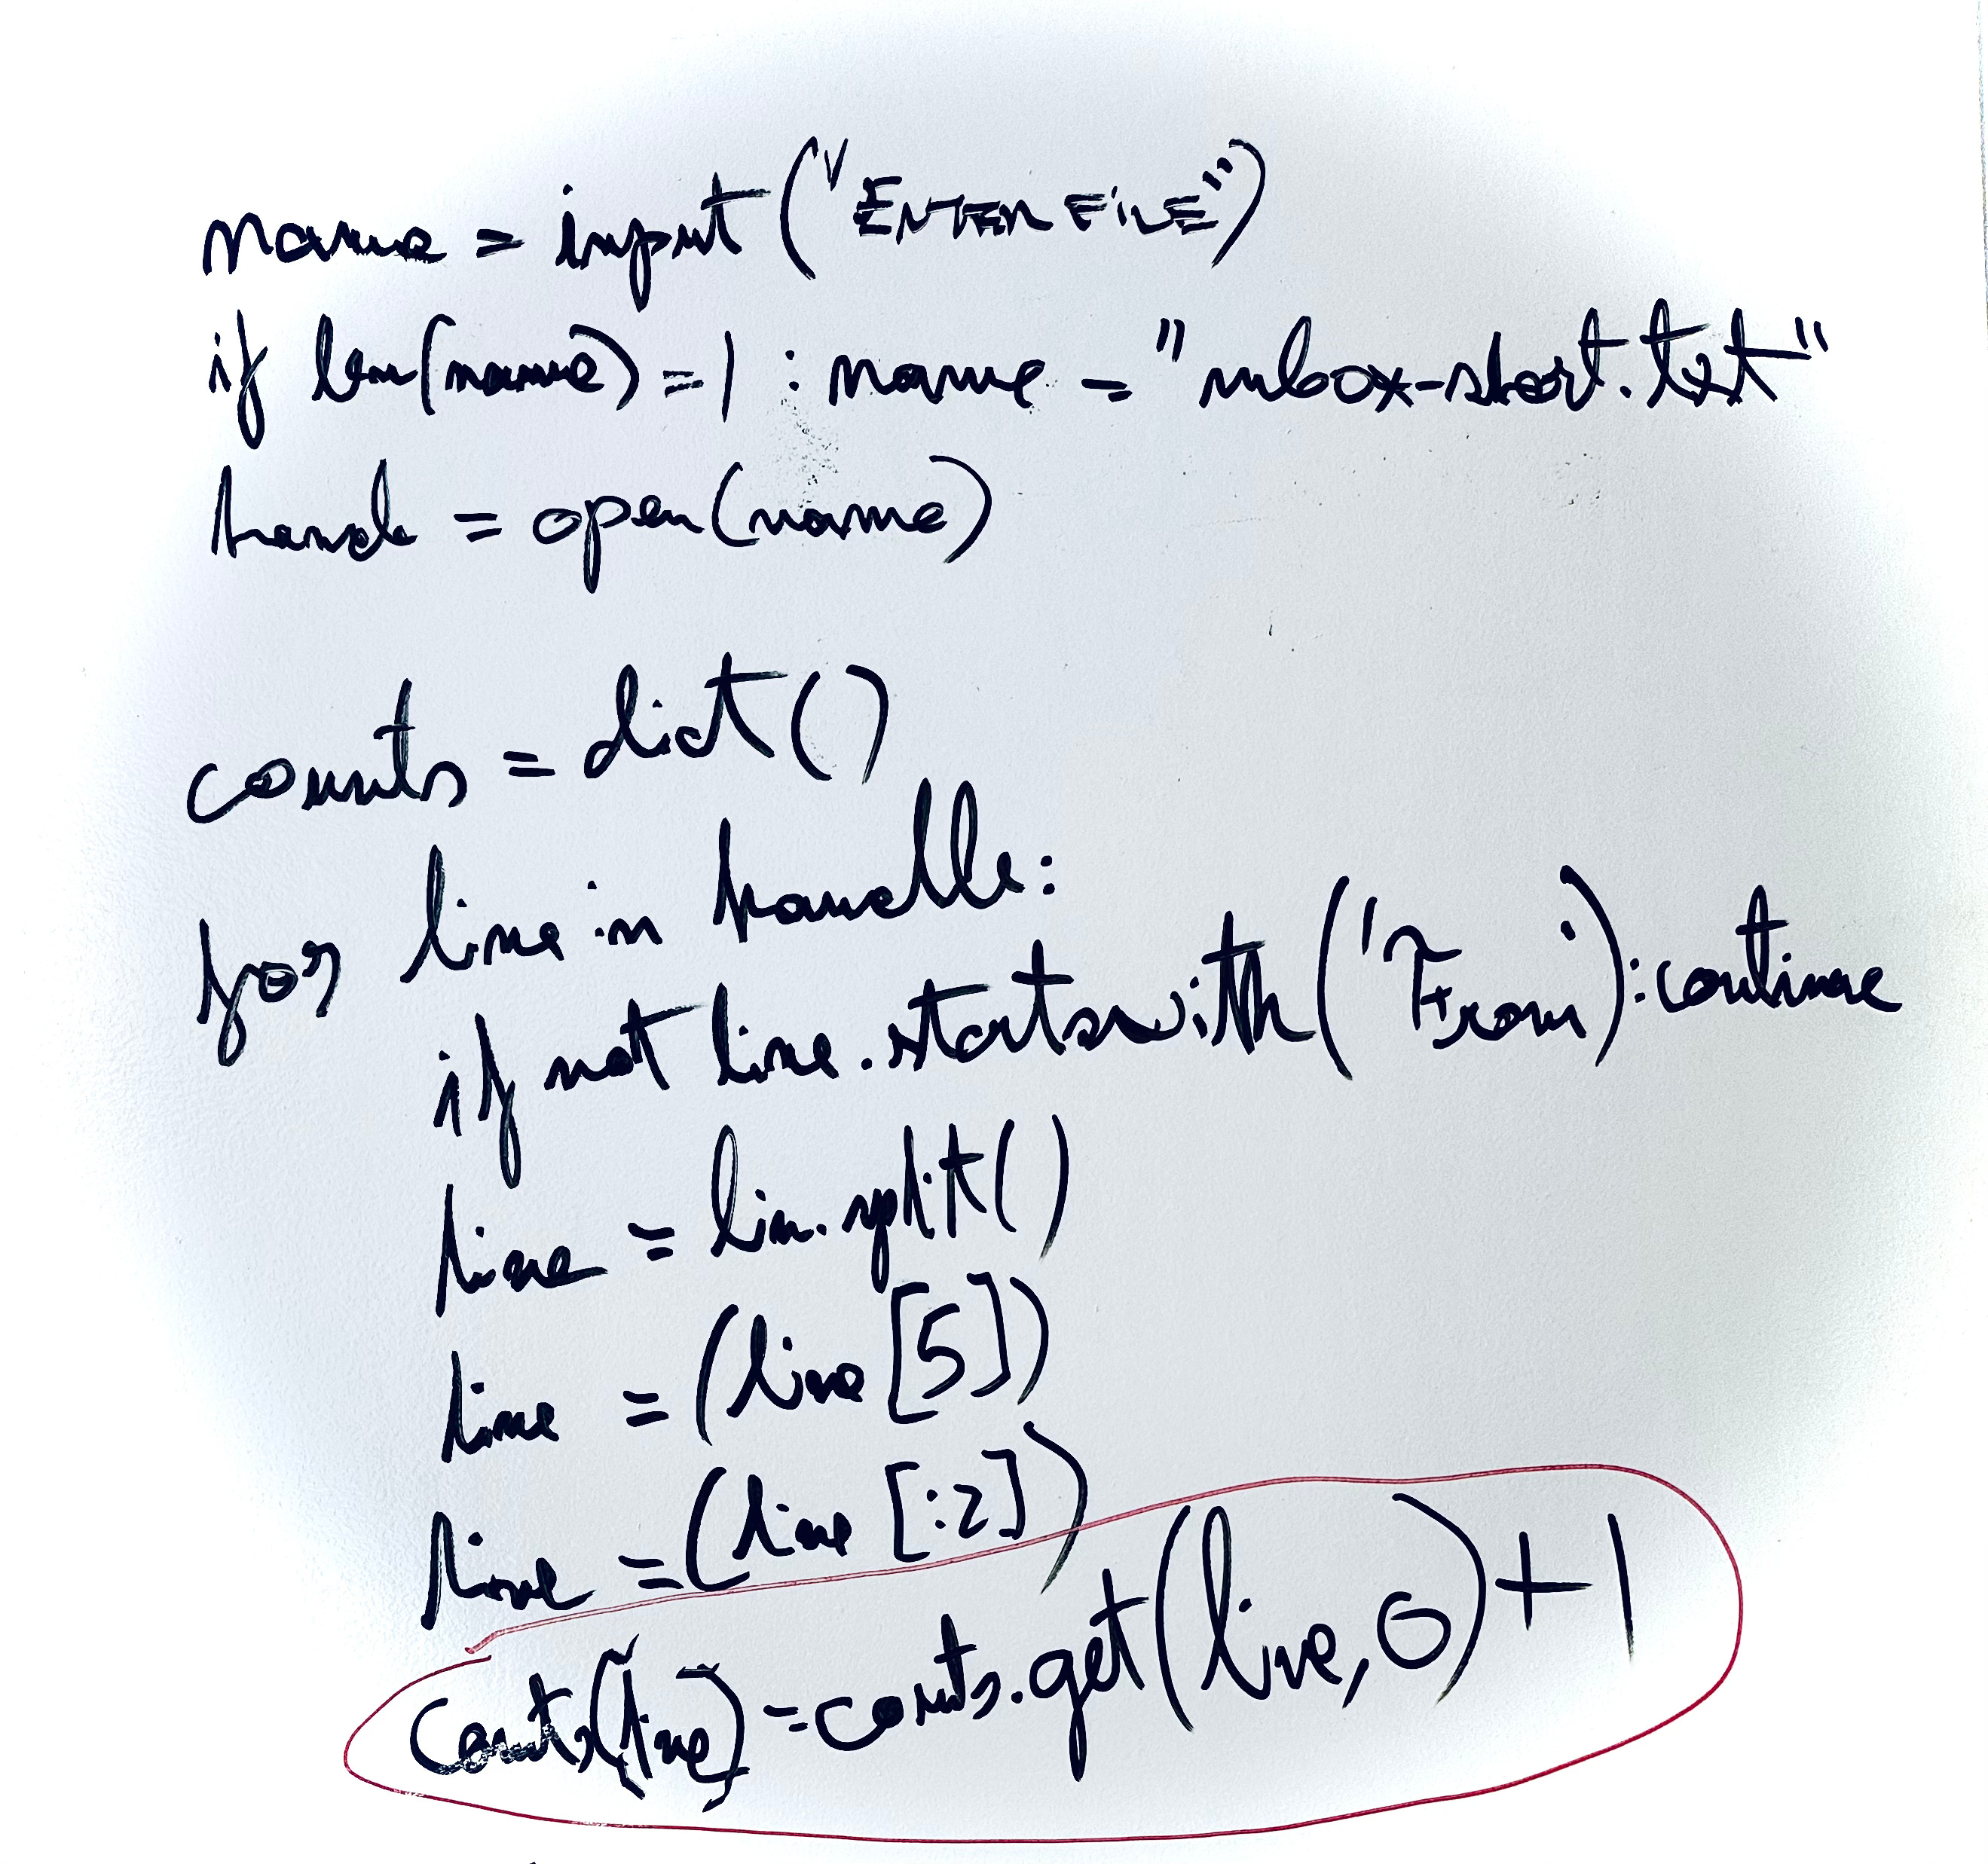 name = input("ENTER FILE")
if len(name)=1 : name = "mbox-short.txt"
handle = open(name)
counts = dict()
for line in handle:
if not line.startswith('From'):continue
line = line.split()
line = (line[5])
line = (line[:2])
counts[line]=counts.get(line,0)+1